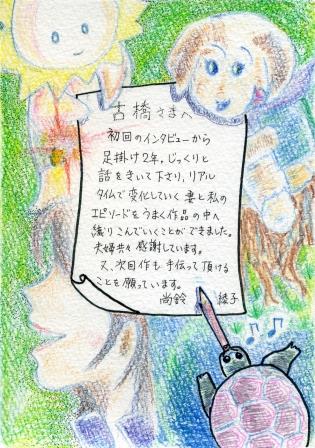 古橋さまへ
初回のインタビューから
足掛け2年。じっくりと
話をきいて下さり、リアル
タイムで変化していく妻と私の
エピソードをうまく作品の中へ
織りこんでいくことができました。
夫婦共々感謝しています。
又、次回作も手伝って頂ける
ことを願っています。
尚鈴 綾子